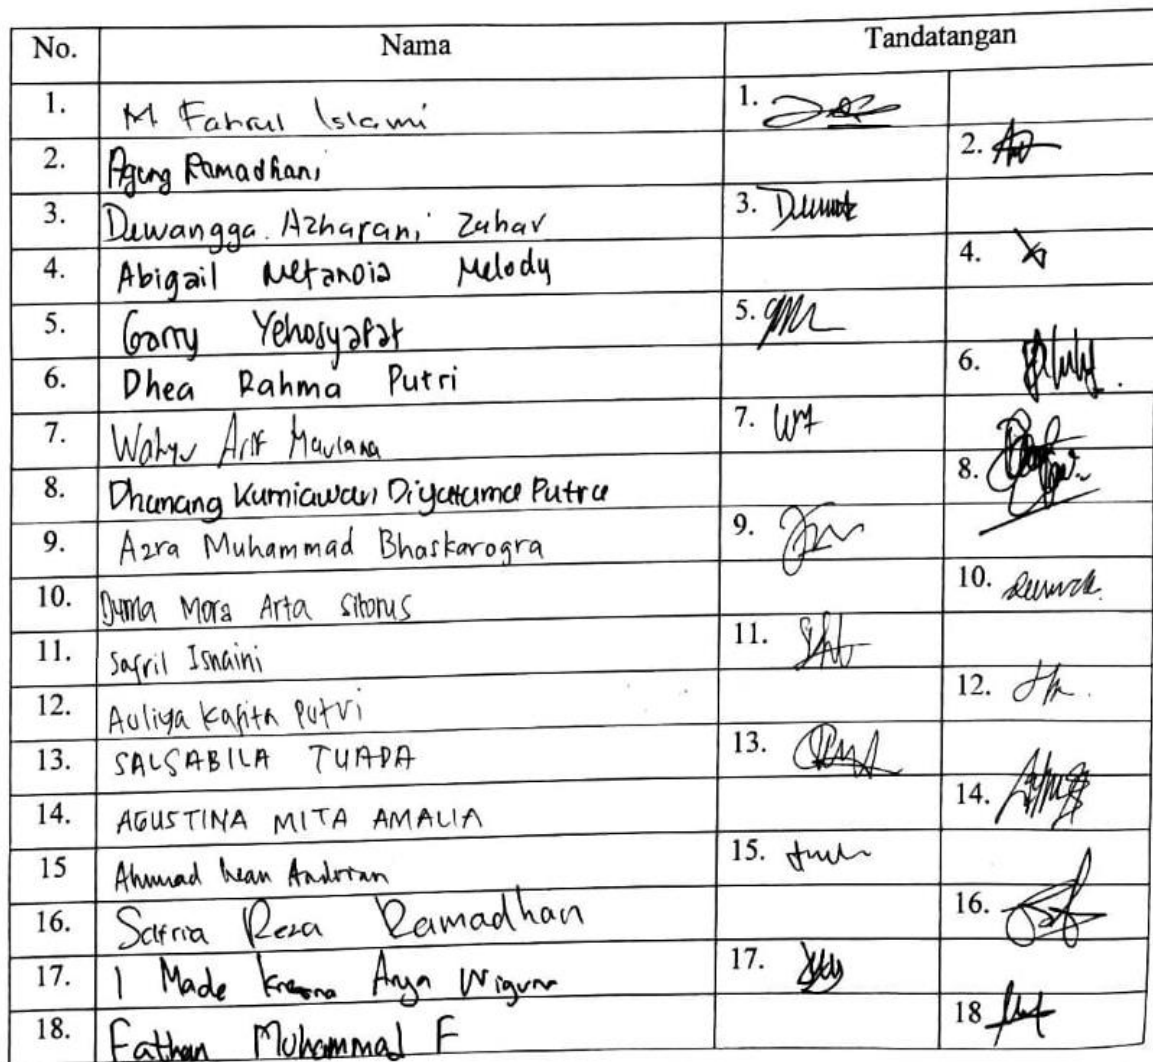 No. Nama Tandatangan
1. M Fahrul Islami 1.
2. Agung Ramadhani 2.
3. Dewangga Azharani Zahar 3.
4. Abigail Metanoia Melody 4.
5. Garry Yehosyafat 5.
6. Dhea Rahma Putri 6.
7. Wahyu Arif Maulana 7.
8. Dhanang Kurniawan Diyatama Putra 8.
9. Azra Muhammad Bhaskarogra 9.
10. Dyma Mora Arta Sitorus 10.
11. Safril Isnaini 11.
12. Auliya Kafita Putri 12.
13. SALSABILA TUADA 13.
14. AGUSTINA MITA AMALIA 14.
15 Ahmad 15.
16. Satria Reza Ramadhan 16.
17. I Made Kresna Arya Wiguna 17.
18. Fathan Muhammad F 18